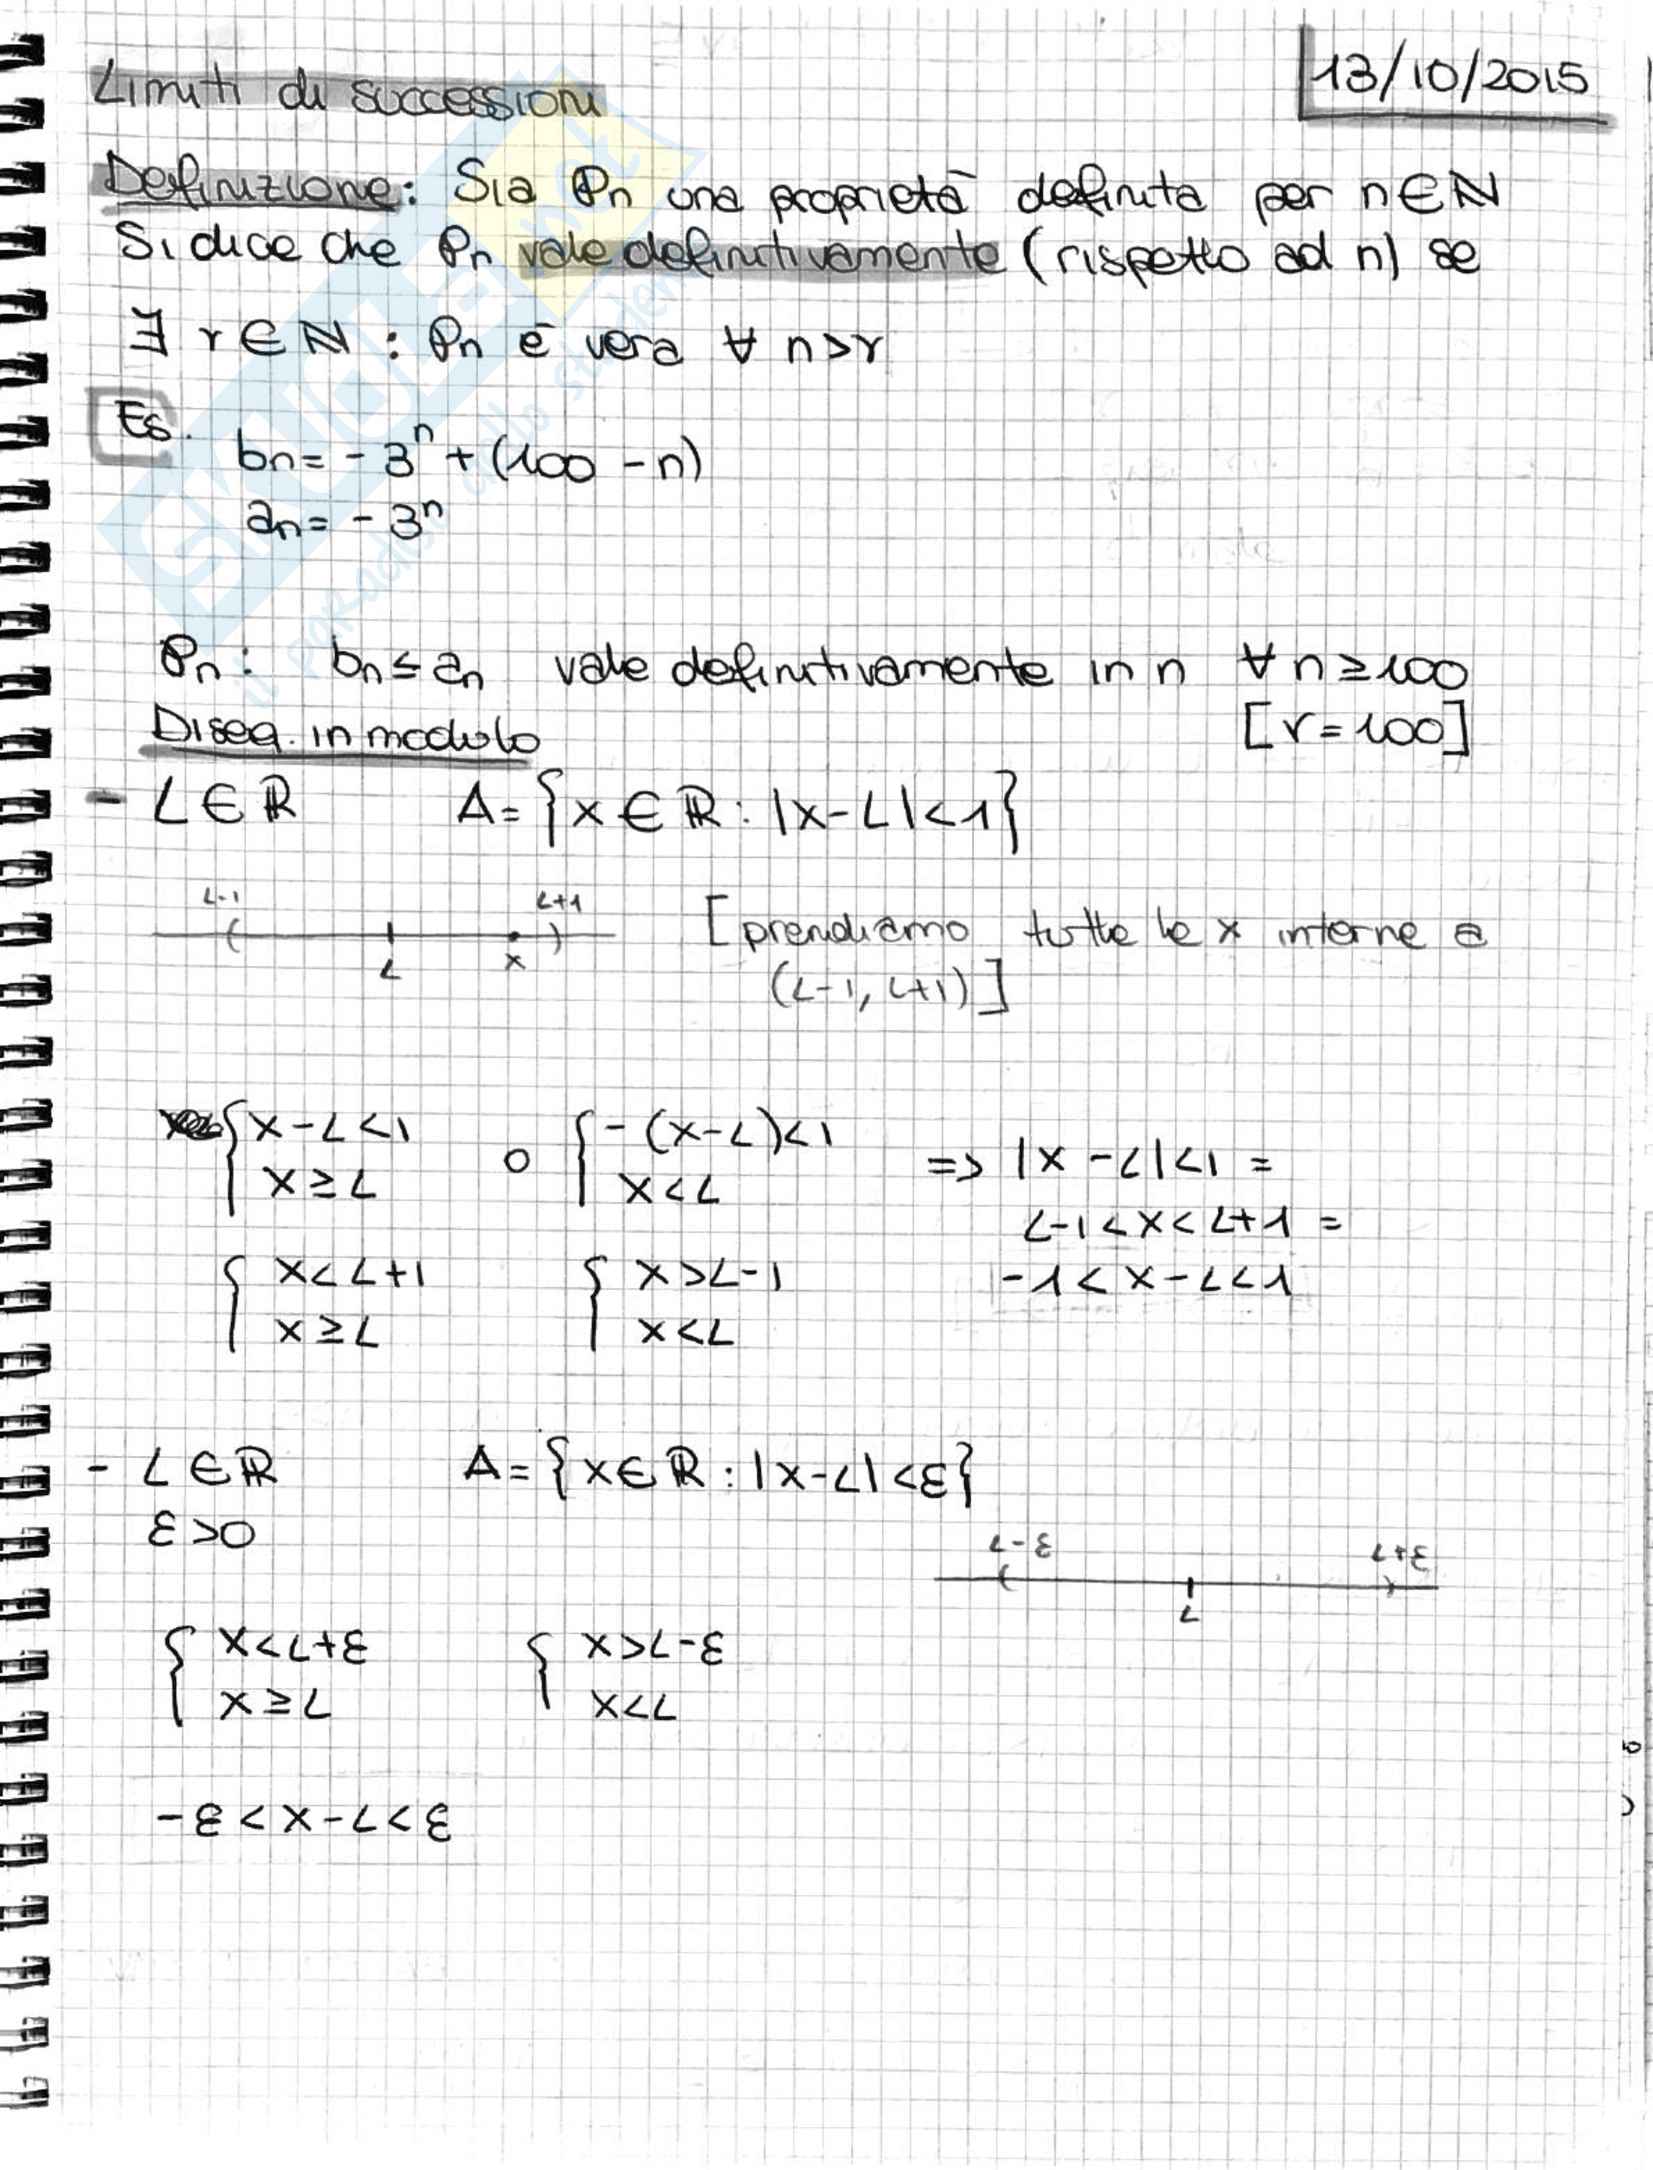 Limiti di successioni
13/10/2015
Definizione: Sia Pn una proprietà definita per n∈ℕ
Si dice che Pn vale definitivamente (rispetto ad n) se
∃ r∈ℕ : Pn è vera ∀ n>r
Es.
bn = -3ⁿ + (100 - n)
an = -3ⁿ
Pn : bn ≤ an vale definitivamente in n ∀ n ≥ 100
[r=100]
Diseq. in modulo
- L∈ℝ A = {x∈ℝ : |x-L|<1}
L-1 L+1
L x
[prendiamo tutte le x interne a
(L-1, L+1)]
{x-L<1 o {-(x-L)<1 => |x-L|<1 =
x≥L x<L L-1<x<L+1 =
{x<L+1 {x>L-1 -1<x-L<1
x≥L x<L
- L∈ℝ A = {x∈ℝ : |x-L|<ε}
ε>0
L-ε L+ε
L
{x<L+ε {x>L-ε
x≥L x<L
-ε<x-L<ε
SKUOLA.net
il paradiso dello studente